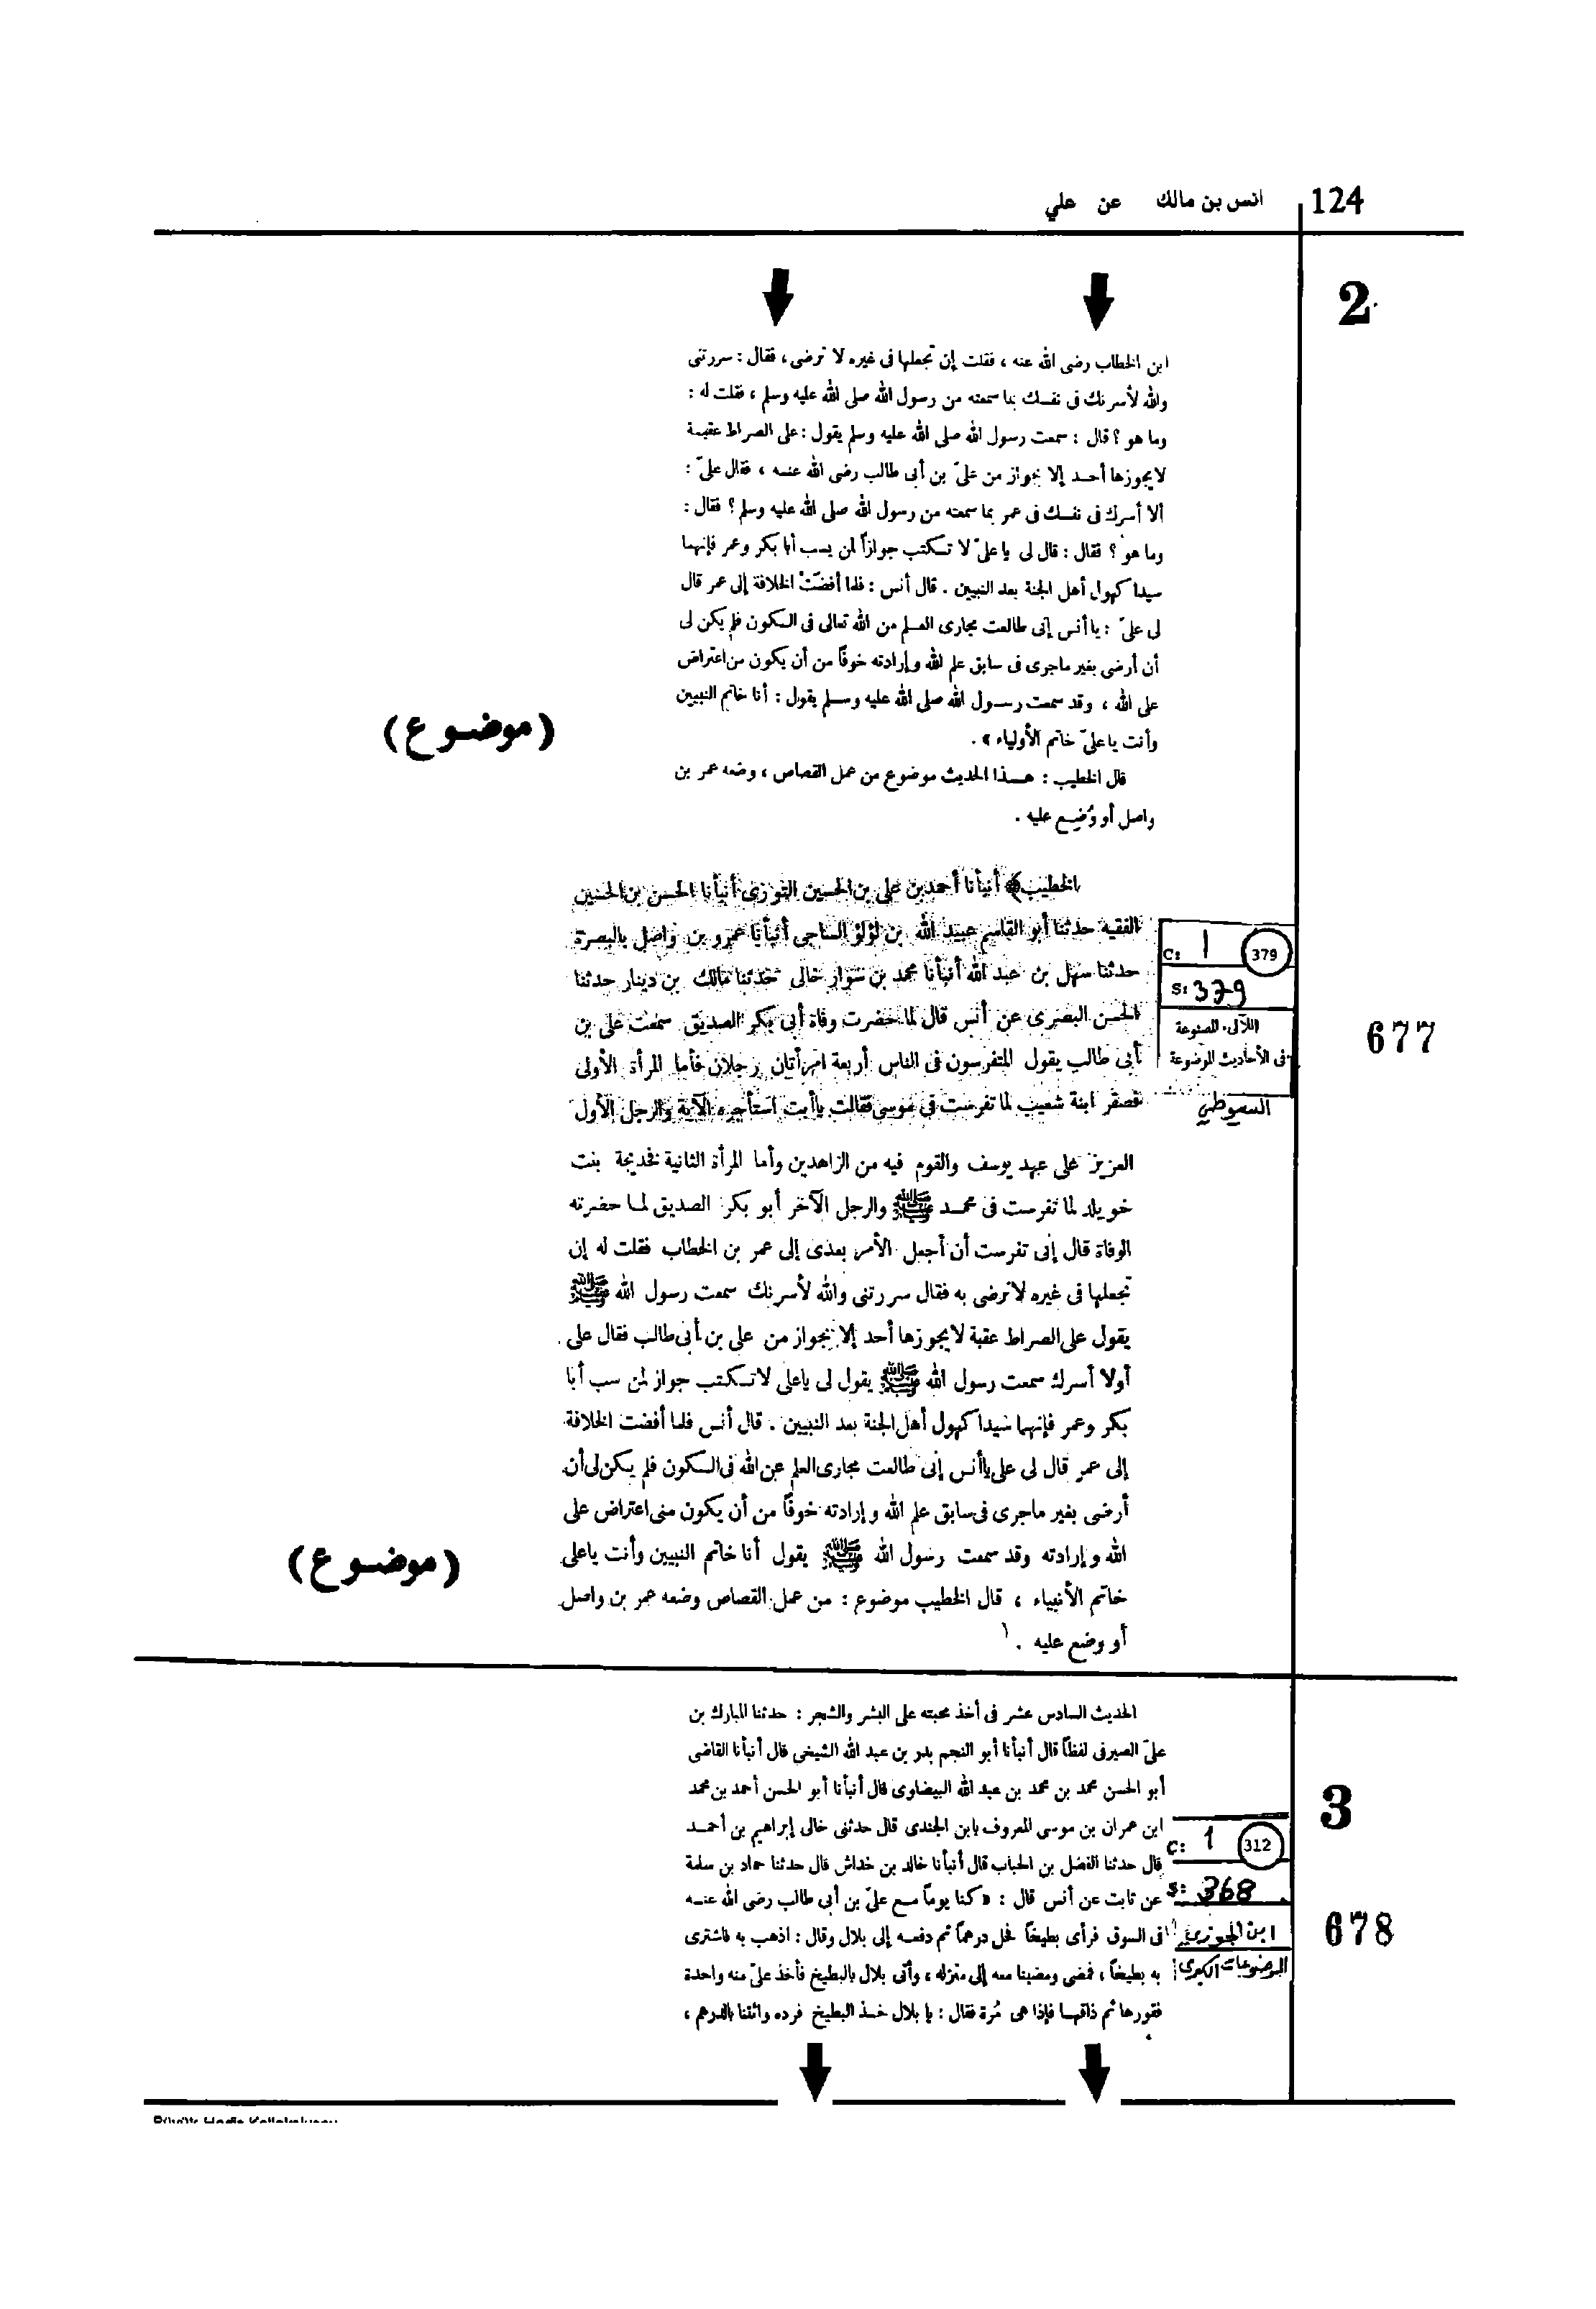 124
انس بن مالك عن علي
2
ابن الخطاب رضى الله عنه ، فقلت إن تجعلها فى غيره لا ترضى ، فقال : سررتنى
والله لأسرنك فى نفسك بما سمعته من رسول الله صلى الله عليه وسلم ، فقلت له :
وما هو ؟ قال : سمعت رسول الله صلى الله عليه وسلم يقول : على الصراط عقبة
لا يجوزها أحد إلا بجواز من علىّ بن أبى طالب رضى الله عنه ، فقال علىّ :
ألا أسرك فى نفسك فى عمر بما سمعته من رسول الله صلى الله عليه وسلم ؟ فقال :
وما هو ؟ فقال : قال لى يا علىّ لا تكتب جوازاً لمن يسب أبا بكر وعمر فإنهما
سيدا كهول أهل الجنة بعد النبيين . قال أنس : فلما أفضتْ الخلافة إلى عمر قال
لى علىّ : يا أنس إنى طالعت مجارى العلم من الله تعالى فى السكون فلم يكن لى
أن أرضى بغير ماجرى فى سابق علم الله وإرادته خوفاً من أن يكون من اعتراض
على الله ، وقد سمعت رسول الله صلى الله عليه وسلم يقول : أنا خاتم النبيين
وأنت يا علىّ خاتم الأولياء » .
(موضوع)
قال الخطيب : هذا الحديث موضوع من عمل القصاص ، وضعه عمر بن
واصل أو وُضِع عليه .
الخطيب﴾ أنبأنا أحمد بن على بن الحسين التوزى أنبأنا الحسن بن الحسين
الفقيه حدثنا أبو القاسم عبيد الله بن لؤلؤ الساجى أنبأنا عمرو بن واصل بالبصرة
حدثنا سهل بن عبد الله أنبأنا محمد بن سوار خالى حدثنا مالك بن دينار حدثنا
الحسن البصرى عن أنس قال لما حضرت وفاة أبى بكر الصديق سمعت على بن
أبى طالب يقول المتفرسون فى الناس أربعة امرأتان ورجلان فأما المرأة الأولى
فصفر ابنة شعيب لما تفرست فى موسى فقالت ياأبت استأجره الآية والرجل الأول
C: 1 379
S: 379
اللآلى المصنوعة
فى الأحاديث الموضوعة
السيوطي
677
العزيز على عهد يوسف والقوم فيه من الزاهدين وأما المرأة الثانية فخديجة بنت
خويلد لما تفرست فى محمد ﷺ والرجل الآخر أبو بكر الصديق لما حضرته
الوفاة قال إنى تفرست أن أجعل الأمر بعدى إلى عمر بن الخطاب فقلت له إن
تجعلها فى غيره لاترضى به فقال سررتنى والله لأسرنك سمعت رسول الله ﷺ
يقول على الصراط عقبة لايجوزها أحد إلا بجواز من على بن أبى طالب فقال على
أولا أسرك سمعت رسول الله ﷺ يقول لى ياعلى لاتكتب جواز لمن سب أبا
بكر وعمر فإنهما سيدا كهول أهل الجنة بعد النبيين . قال أنس فلما أفضت الخلافة
إلى عمر قال لى على ياأنس إنى طالعت مجارى العلم عن الله فى السكون فلم يكن لى أن
أرضى بغير ماجرى فى سابق علم الله وإرادته خوفاً من أن يكون منى اعتراض على
الله وإرادته وقد سمعت رسول الله ﷺ يقول أنا خاتم النبيين وأنت ياعلى
(موضوع)
خاتم الأنبياء ، قال الخطيب موضوع : من عمل القصاص وضعه عمر بن واصل
أو وضع عليه .
الحديث السادس عشر فى أخذ محبته على البشر والشجر : حدثنا المبارك بن
علىّ الصيرفى لفظاً قال أنبأنا أبو النجم بدر بن عبد الله الشيخى قال أنبأنا القاضى
أبو الحسن محمد بن محمد بن عبد الله البيضاوى قال أنبأنا أبو الحسن أحمد بن محمد
ابن عمران بن موسى المعروف بابن الجندى قال حدثنى خالى إبراهيم بن أحمد
قال حدثنا الفضل بن الحباب قال أنبأنا خالد بن خداش قال حدثنا حماد بن سلمة
عن ثابت عن أنس قال : « كنا يوماً مع علىّ بن أبى طالب رضى الله عنه
فى السوق فرأى بطيخاً فحل درهماً ثم دفعه إلى بلال وقال : اذهب به فاشترى
به بطيخاً ، فمضى ومضينا معه إلى منزله ، وأتى بلال بالبطيخ فأخذ علىّ منه واحدة
فقورها ثم ذاقها فإذا هى مُرة فقال : يا بلال خذ البطيخ فرده وائتنا بالدرهم ،
3
C: 1 312
S: 368
ابن الجوزي
الموضوعات الكبرى
678